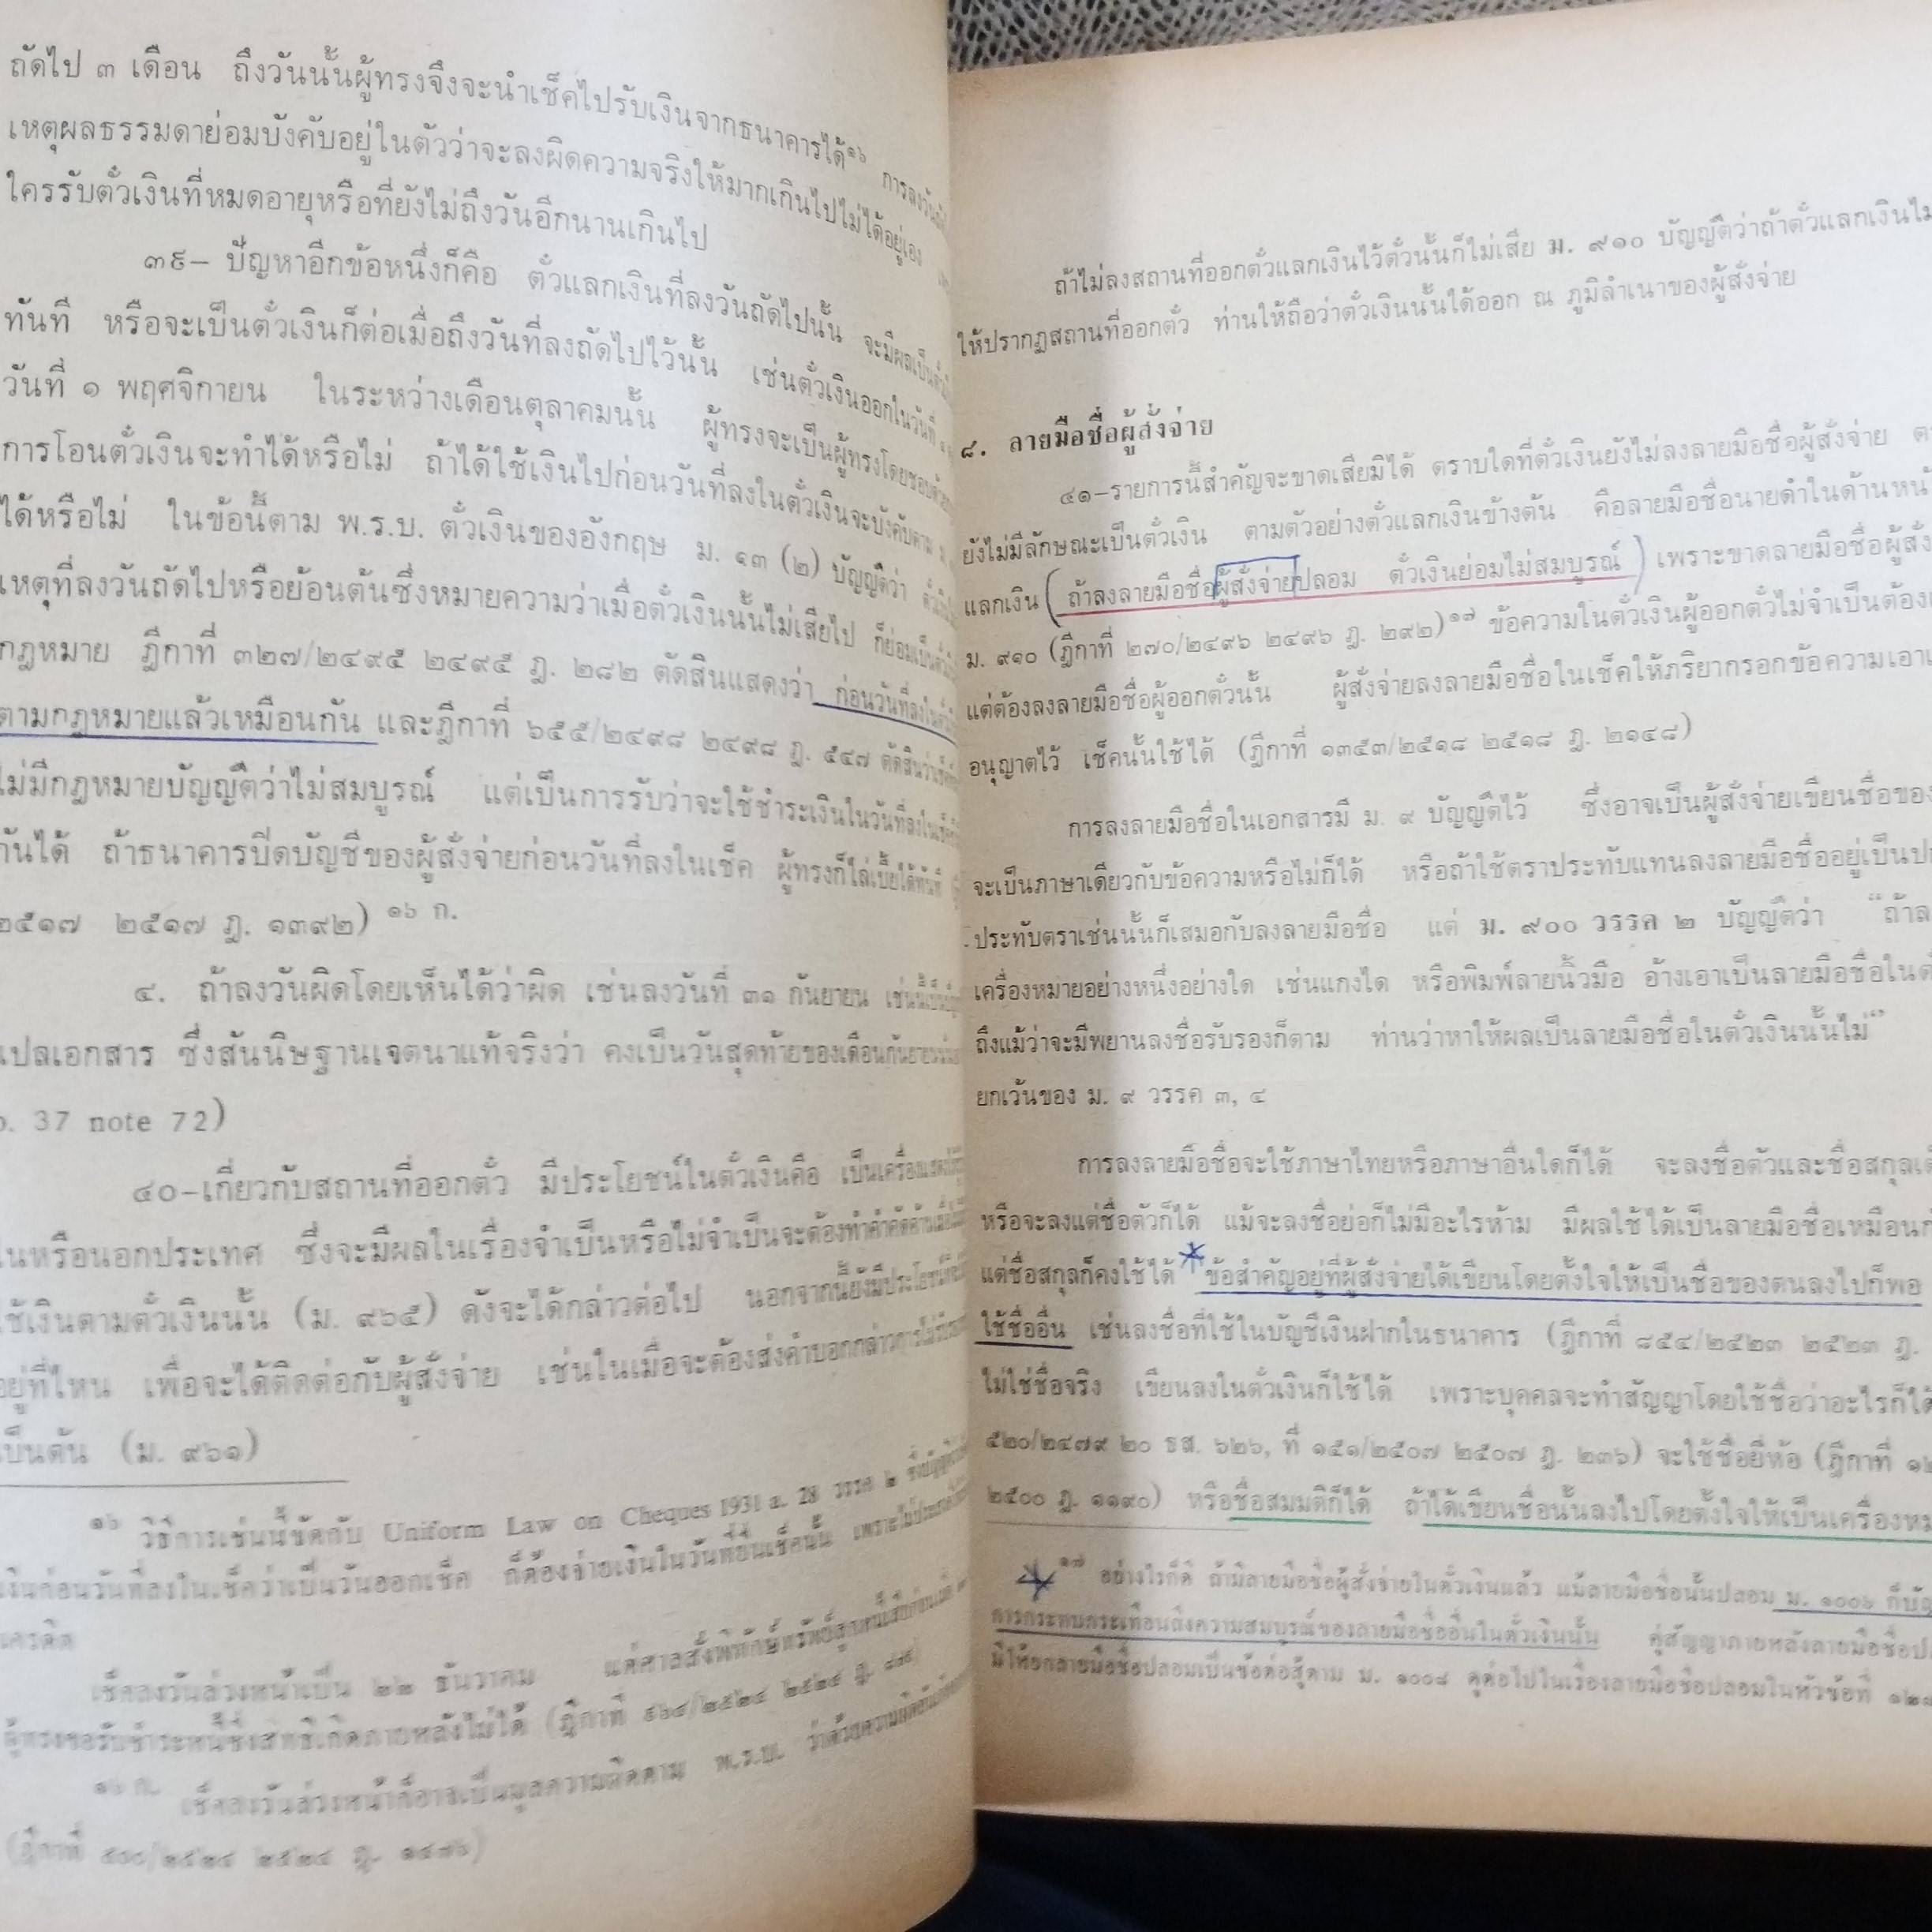 ถัดไป ๓ เดือน ถึงวันนั้นผู้ทรงจึงจะนำเช็คไปรับเงินจากธนาคารได้๑๖ การลงวัน
เหตุผลธรรมดาย่อมบังคับอยู่ในตัวว่าจะลงผิดความจริงให้มากเกินไปไม่ได้อยู่เอง
ใครรับตั๋วเงินที่หมดอายุหรือที่ยังไม่ถึงวันอีกนานเกินไป
๓๙– ปัญหาอีกข้อหนึ่งก็คือ ตั๋วแลกเงินที่ลงวันถัดไปนั้น จะมีผลเป็น
ทันที หรือจะเป็นตั๋วเงินก็ต่อเมื่อถึงวันที่ลงถัดไปไว้นั้น เช่นตั๋วเงินออกในวันที่
วันที่ ๑ พฤศจิกายน ในระหว่างเดือนตุลาคมนั้น ผู้ทรงจะเป็นผู้ทรงโดยชอบด้วย
การโอนตั๋วเงินจะทำได้หรือไม่ ถ้าได้ใช้เงินไปก่อนวันที่ลงในตั๋วเงินจะบังคับตาม
ได้หรือไม่ ในข้อนี้ตาม พ.ร.บ. ตั๋วเงินของอังกฤษ ม. ๑๓ (๒) บัญญัติว่า
เหตุที่ลงวันถัดไปหรือย้อนต้นซึ่งหมายความว่าเมื่อตั๋วเงินนั้นไม่เสียไป ก็ย่อมเป็น
กฎหมาย ฎีกาที่ ๓๒๗/๒๔๙๕ ๒๔๙๕ ฎ. ๒๘๒ ตัดสินแสดงว่า ก่อนวันที่ลงใน
ตามกฎหมายแล้วเหมือนกัน และฎีกาที่ ๖๕๕/๒๔๙๘ ๒๔๙๘ ฎ. ๕๔๗ ตัดสินว่า
ไม่มีกฎหมายบัญญัติว่าไม่สมบูรณ์ แต่เป็นการรับว่าจะใช้ชำระเงินในวันที่ลงใน
กันได้ ถ้าธนาคารปิดบัญชีของผู้สั่งจ่ายก่อนวันที่ลงในเช็ค ผู้ทรงก็ไล่เบี้ยได้ทันที
๒๕๑๗ ๒๕๑๗ ฎ. ๑๓๙๒) ๑๖ ก.
๔. ถ้าลงวันผิดโดยเห็นได้ว่าผิด เช่นลงวันที่ ๓๑ กันยายน
แปลเอกสาร ซึ่งสันนิษฐานเจตนาแท้จริงว่า คงเป็นวันสุดท้ายของเดือนกันยายน
p. 37 note 72)
๔๐–เกี่ยวกับสถานที่ออกตั๋ว มีประโยชน์ในตั๋วเงินคือ เป็นเครื่องแสดง
ในหรือนอกประเทศ ซึ่งจะมีผลในเรื่องจำเป็นหรือไม่จำเป็นจะต้องทำคำคัดค้าน
ใช้เงินตามตั๋วเงินนั้น (ม. ๙๖๕) ดังจะได้กล่าวต่อไป นอกจากนี้ยังมีประโยชน์
อยู่ที่ไหน เพื่อจะได้ติดต่อกับผู้สั่งจ่าย เช่นในเมื่อจะต้องส่งคำบอกกล่าวการไม่
เป็นต้น (ม. ๙๖๑)
๑๖ วิธีการเช่นนี้ขัดกับ Uniform Law on Cheques 1931 a. 28 วรรค ๒
เงินก่อนวันที่ลงในเช็คว่าเป็นวันออกเช็ค ก็ต้องจ่ายเงินในวันที่ยื่นเช็คนั้น
เครดิต
เช็คลงวันล่วงหน้าเป็น ๒๒ ธันวาคม แต่ศาลสั่งพิทักษ์ทรัพย์ลูกหนี้
ผู้ทรงขอรับชำระหนี้ซึ่งสิทธิเกิดภายหลังไม่ได้
๑๖ ก. เช็คลงวันล่วงหน้าก็อาจเป็นมูลความผิดตาม พ.ร.บ. ว่าด้วยความผิด
ถ้าไม่ลงสถานที่ออกตั๋วแลกเงินไว้ตั๋วนั้นก็ไม่เสีย ม. ๙๑๐ บัญญัติว่าถ้าตั๋วแลกเงินไม่
ให้ปรากฏสถานที่ออกตั๋ว ท่านให้ถือว่าตั๋วเงินนั้นได้ออก ณ ภูมิลำเนาของผู้สั่งจ่าย
๘. ลายมือชื่อผู้สั่งจ่าย
๔๑–รายการนี้สำคัญจะขาดเสียมิได้ ตราบใดที่ตั๋วเงินยังไม่ลงลายมือชื่อผู้สั่งจ่าย
ยังไม่มีลักษณะเป็นตั๋วเงิน ตามตัวอย่างตั๋วแลกเงินข้างต้น คือลายมือชื่อนายดำในด้านหน้า
แลกเงิน (ถ้าลงลายมือชื่อผู้สั่งจ่ายปลอม ตั๋วเงินย่อมไม่สมบูรณ์) เพราะขาดลายมือชื่อผู้สั่ง
ม. ๙๑๐ (ฎีกาที่ ๒๗๐/๒๔๙๖ ๒๔๙๖ ฎ. ๒๙๒)๑๗ ข้อความในตั๋วเงินผู้ออกตั๋วไม่จำเป็นต้อง
แต่ต้องลงลายมือชื่อผู้ออกตั๋วนั้น ผู้สั่งจ่ายลงลายมือชื่อในเช็คให้ภริยากรอกข้อความเอา
อนุญาตไว้ เช็คนั้นใช้ได้ (ฎีกาที่ ๑๓๕๓/๒๕๑๘ ๒๕๑๘ ฎ. ๒๑๔๘)
การลงลายมือชื่อในเอกสารมี ม. ๙ บัญญัติไว้ ซึ่งอาจเป็นผู้สั่งจ่ายเขียนชื่อของ
จะเป็นภาษาเดียวกับข้อความหรือไม่ก็ได้ หรือถ้าใช้ตราประทับแทนลงลายมือชื่ออยู่เป็น
ประทับตราเช่นนั้นก็เสมอกับลงลายมือชื่อ แต่ ม. ๙๐๐ วรรค ๒ บัญญัติว่า “ถ้า
เครื่องหมายอย่างหนึ่งอย่างใด เช่นแกงได หรือพิมพ์ลายนิ้วมือ อ้างเอาเป็นลายมือชื่อใน
ถึงแม้ว่าจะมีพยานลงชื่อรับรองก็ตาม ท่านว่าหาให้ผลเป็นลายมือชื่อในตั๋วเงินนั้นไม่”
ยกเว้นของ ม. ๙ วรรค ๓, ๔
การลงลายมือชื่อจะใช้ภาษาไทยหรือภาษาอื่นใดก็ได้ จะลงชื่อตัวและชื่อสกุล
หรือจะลงแต่ชื่อตัวก็ได้ แม้จะลงชื่อย่อก็ไม่มีอะไรห้าม มีผลใช้ได้เป็นลายมือชื่อเหมือน
แต่ชื่อสกุลก็คงใช้ได้ ข้อสำคัญอยู่ที่ผู้สั่งจ่ายได้เขียนโดยตั้งใจให้เป็นชื่อของตนลงไปก็พอ
ใช้ชื่ออื่น เช่นลงชื่อที่ใช้ในบัญชีเงินฝากในธนาคาร (ฎีกาที่ ๘๕๔/๒๕๒๓ ๒๕๒๓ ฎ.
ไม่ใช่ชื่อจริง เขียนลงในตั๋วเงินก็ใช้ได้ เพราะบุคคลจะทำสัญญาโดยใช้ชื่อว่าอะไรก็ได้
๕๒๐/๒๔๗๙ ๒๐ ธส. ๖๒๖, ที่ ๑๕๑/๒๕๐๗ ๒๕๐๗ ฎ. ๒๓๖) จะใช้ชื่อยี่ห้อ (ฎีกาที่
๒๕๐๐ ฎ. ๑๑๙๐) หรือชื่อสมมติก็ได้ ถ้าได้เขียนชื่อนั้นลงไปโดยตั้งใจให้เป็นเครื่อง
๑๗ อย่างไรก็ดี ถ้ามีลายมือชื่อผู้สั่งจ่ายในตั๋วเงินแล้ว แม้ลายมือชื่อนั้นปลอม ม. ๑๐๐๖ ก็
การกระทบกระเทือนถึงความสมบูรณ์ของลายมือชื่ออื่นในตั๋วเงินนั้น คู่สัญญาภายหลังลายมือชื่อ
มิให้ยกลายมือชื่อปลอมเป็นข้อต่อสู้ตาม ม. ๑๐๐๘ ดูต่อไปในเรื่องลายมือชื่อปลอมในหัวข้อที่